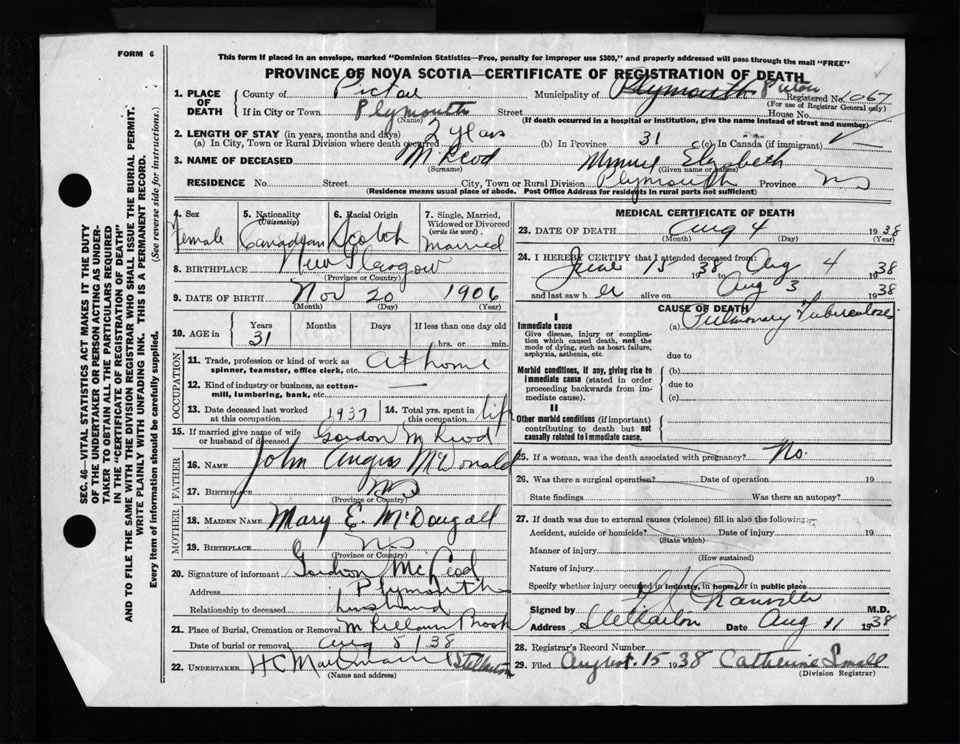 FORM 6
This form if placed in an envelope, marked "Dominion Statistics—Free, penalty for improper use $300," and properly addressed will pass through the mail "FREE"
PROVINCE OF NOVA SCOTIA—CERTIFICATE OF REGISTRATION OF DEATH
1. PLACE OF DEATH
County of Pictou Municipality of Plymouth Pictou
Registered No. 1067
(For use of Registrar General only)
If in City or Town Plymouth Street House No.
(Name) (If death occurred in a hospital or institution, give the name instead of street and number)
2. LENGTH OF STAY (in years, months and days)
(a) In City, Town or Rural Division where death occurred 2 years (b) In Province 31 (c) In Canada (if immigrant)
3. NAME OF DECEASED McLeod Minnie Elizabeth
(Surname) (Given name or names)
RESIDENCE No. Street City, Town or Rural Division Plymouth Province NS
(Residence means usual place of abode. Post Office Address for residents in rural parts not sufficient)
4. Sex
female
5. Nationality
(Citizenship)
Canadian
6. Racial Origin
Scotch
7. Single, Married, Widowed or Divorced
(write the word)
Married
8. BIRTHPLACE New Glasgow
(Province or Country)
9. DATE OF BIRTH Nov 20 1906
(Month) (Day) (Year)
10. AGE in Years Months Days If less than one day old
31 hrs. or min.
OCCUPATION
11. Trade, profession or kind of work as spinner, teamster, office clerk, etc. At home
12. Kind of industry or business, as cotton-mill, lumbering, bank, etc. —
13. Date deceased last worked at this occupation 1937
14. Total yrs. spent in this occupation life
15. If married give name of wife or husband of deceased Gordon McLeod
FATHER
16. Name John Angus McDonald
17. Birthplace NS
(Province or Country)
MOTHER
18. Maiden Name Mary E. McDougall
19. Birthplace NS
(Province or Country)
20. Signature of informant Gordon McLeod
Address Plymouth
Relationship to deceased husband
21. Place of Burial, Cremation or Removal Brook
Date of burial or removal Aug 5 / 38
22. UNDERTAKER H C Stellarton
(Name and address)
MEDICAL CERTIFICATE OF DEATH
23. DATE OF DEATH Aug 4 1938
(Month) (Day) (Year)
24. I HEREBY CERTIFY that I attended deceased from
June 15 1938 to Aug 4 1938
and last saw her alive on Aug 3 1938
CAUSE OF DEATH
I
Immediate cause
Give disease, injury or complication which caused death, not the mode of dying, such as heart failure, asphyxia, asthenia, etc.
(a) Pulmonary Tuberculosis
due to
Morbid conditions, if any, giving rise to immediate cause (stated in order proceeding backwards from immediate cause).
(b)
due to
(c)
II
Other morbid conditions (if important) contributing to death but not causally related to immediate cause.
25. If a woman, was the death associated with pregnancy? No.
26. Was there a surgical operation? Date of operation 19
State findings Was there an autopsy?
27. If death was due to external causes (violence) fill in also the following:
Accident, suicide or homicide? Date of injury 19
(State which)
Manner of injury
(How sustained)
Nature of injury
Specify whether injury occurred in industry, in home, or in public place
Signed by M.D.
Address Stellarton Date Aug 11 1938
28. Registrar's Record Number
29. Filed August 15 1938 Catherine Small
(Division Registrar)
SEC. 46—VITAL STATISTICS ACT MAKES IT THE DUTY
OF THE UNDERTAKER OR PERSON ACTING AS UNDER-
TAKER TO OBTAIN ALL THE PARTICULARS REQUIRED
IN THE "CERTIFICATE OF REGISTRATION OF DEATH"
AND TO FILE THE SAME WITH THE DIVISION REGISTRAR WHO SHALL ISSUE THE BURIAL PERMIT.
WRITE PLAINLY WITH UNFADING INK. THIS IS A PERMANENT RECORD.
Every item of information should be carefully supplied. (See reverse side for instructions.)